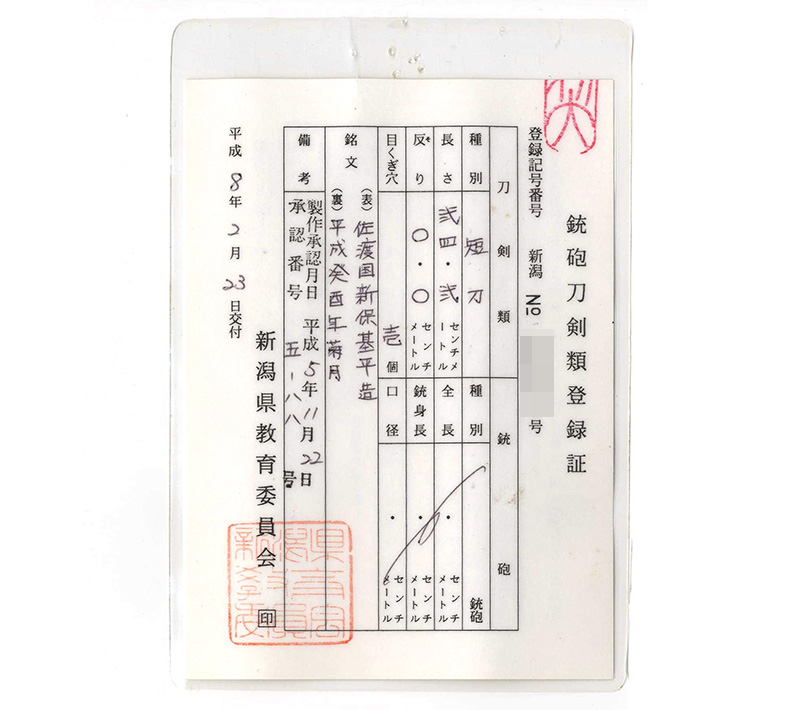 銃砲刀剣類登録証
登録記号番号 新潟 No 号
刀剣類 銃砲
種別 短刀 種別 銃砲
長さ 弐四・弐 センチメートル 全長 ・ センチメートル
反り そ 〇・〇 センチメートル 銃身長 ・ センチメートル
目くぎ穴 壱個 口径 ・ センチメートル
銘文 (表) 佐渡国新保基平造
(裏) 平成癸酉年菊月
備考 製作承認月日 平成5年11月22日
承認番号 五-八八号
平成8年2月23日交付
新潟県教育委員会 印